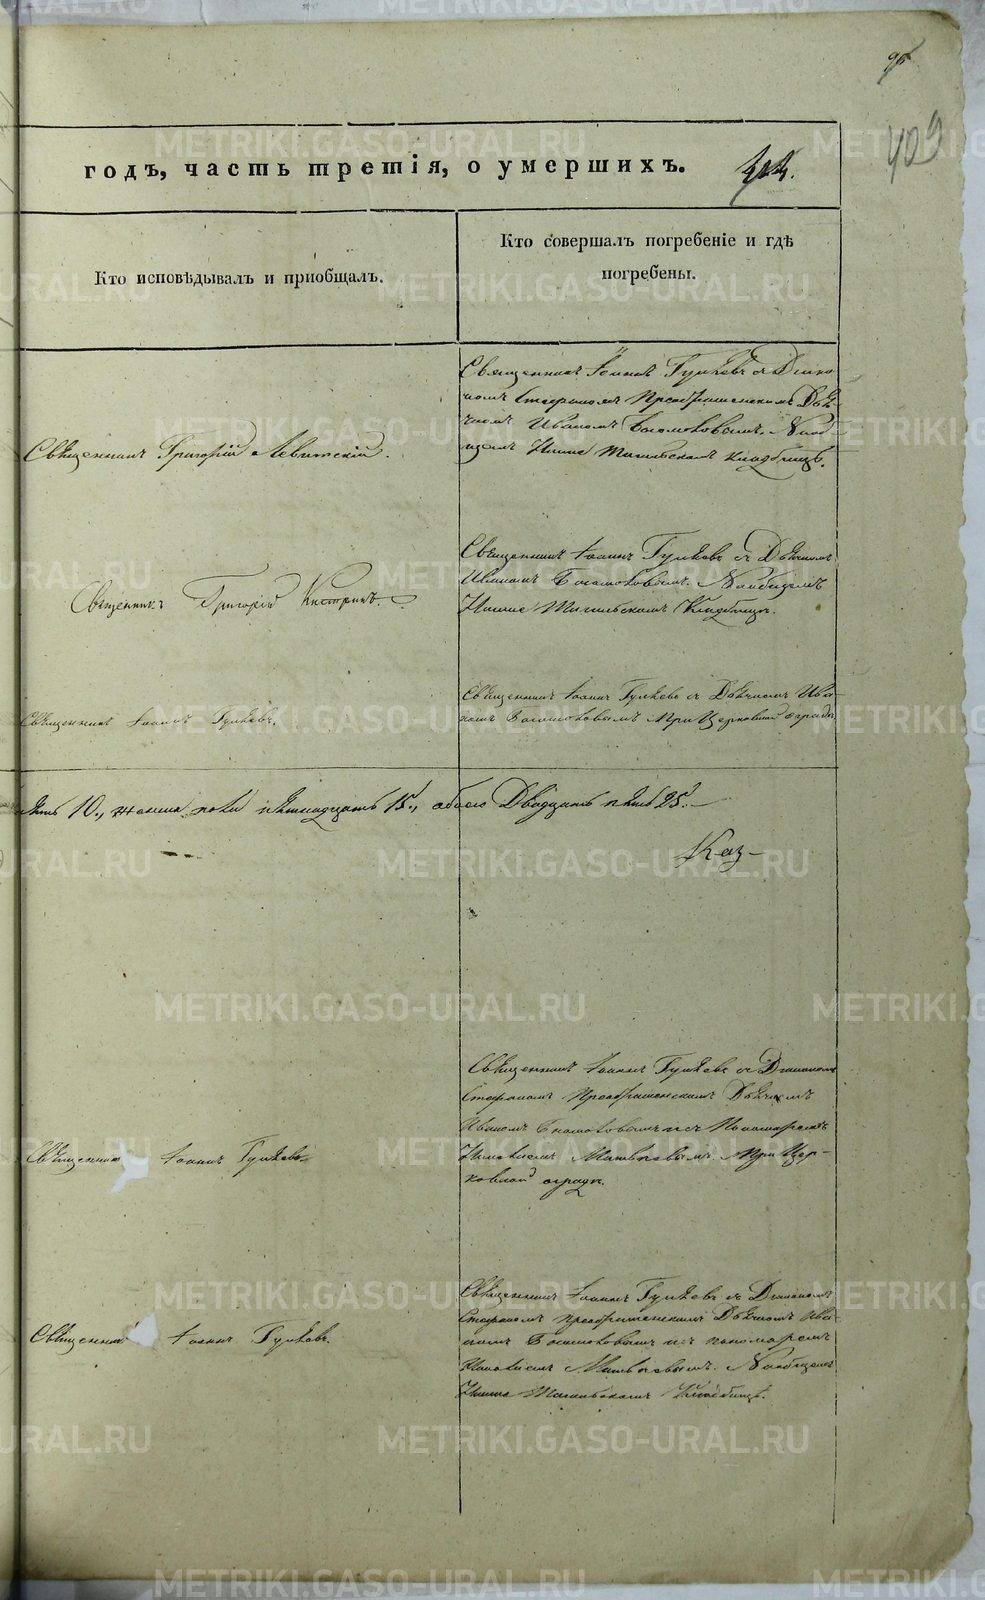 95
409
годъ, часть третія, о умершихъ.
Кто исповѣдывалъ и пріобщалъ.
Кто совершалъ погребеніе и гдѣ
погребены.
Священникъ Григорій Левитскій.
Священникъ Іоаннъ Гуляевъ съ Діако
номъ Стефаномъ Преображенскимъ Дья-
чкомъ Иваномъ Богомоловымъ. На об-
щемъ Нижне Тагильскомъ кладбищѣ.
Священникъ Григорій
Священникъ Іоаннъ Гуляевъ съ Дьячкомъ
Иваномъ Богомоловымъ. На общемъ
Нижне Тагильскомъ Кладбищѣ.
Священникъ Іоаннъ Гуляевъ.
Священникъ Іоаннъ Гуляевъ съ Дьячкомъ Ива-
номъ Богомоловымъ. При Церковной оградѣ.
10., женска пола пятнадцать 15., обоего Двадцать пять 25.
Священникъ Іоаннъ Гуляевъ.
Священникъ Іоаннъ Гуляевъ съ Діакономъ
Стефаномъ Преображенскимъ Дьячкомъ
Иваномъ Богомоловымъ и съ Пономаремъ
При Цер-
ковной оградѣ.
Священникъ Іоаннъ Гуляевъ.
Священникъ Іоаннъ Гуляевъ съ Діакономъ
Стефаномъ Преображенскимъ Дьячкомъ Ива-
номъ Богомоловымъ и съ пономаремъ
На общемъ
Нижне Тагильскомъ Кладбищѣ.
METRIKI.GASO-URAL.RU